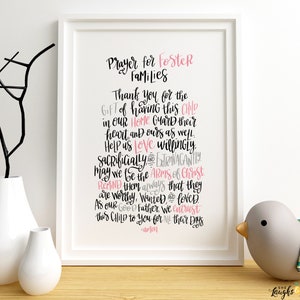 Prayer for FOSTER
families
Thank you for the
GIFT of having this CHILD
in our HOME guard their
heart and ours as well.
Help us LOVE willingly,
sacrificially & EXTRAVAGANTLY
may we be the ARMS of CHRIST
REMIND them always that they
are worthy, wanted & loved
As our GOOD Father we ENTRUST
this CHILD to you for all their days
amen